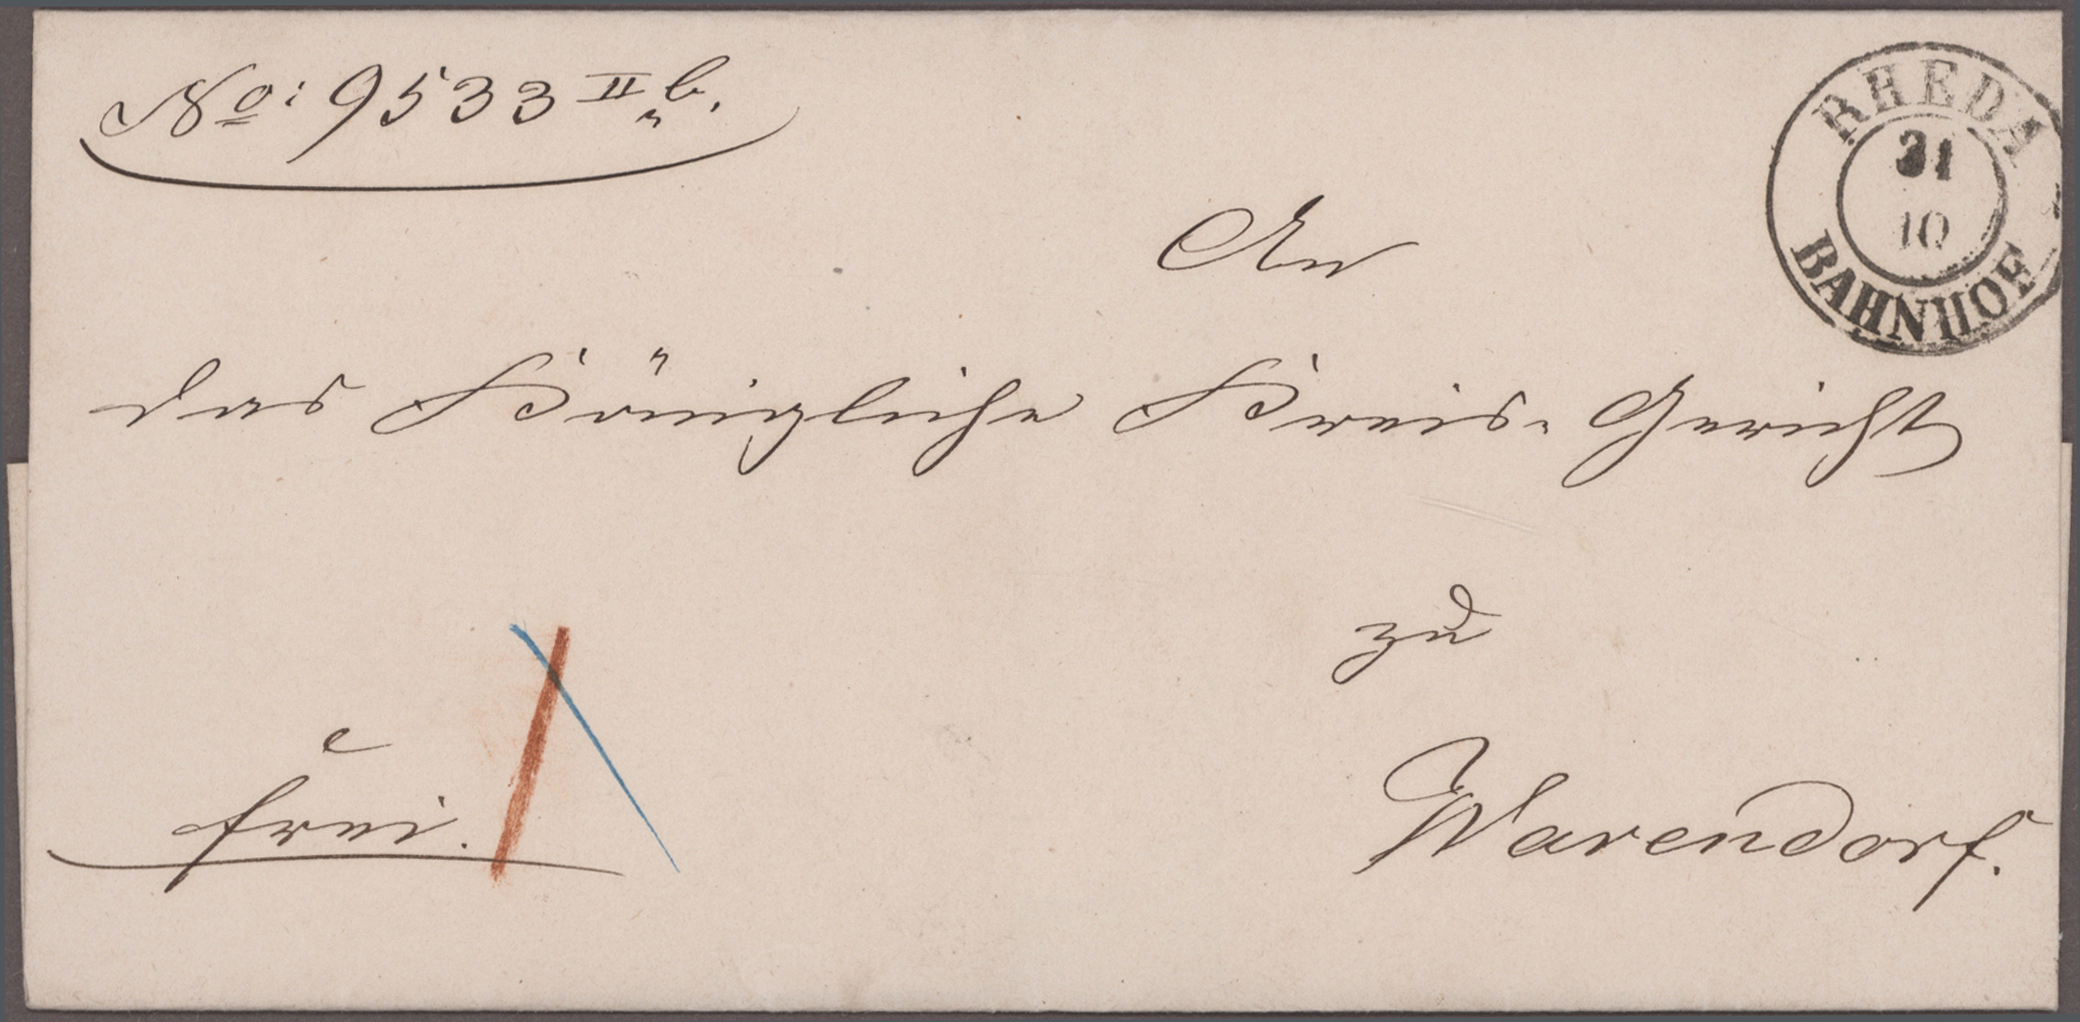 No: 9533 II b.
RHEDA
31
10
BAHNHOF
An
das Königliche Kreis-Gericht
zu
frei.
Warendorf.